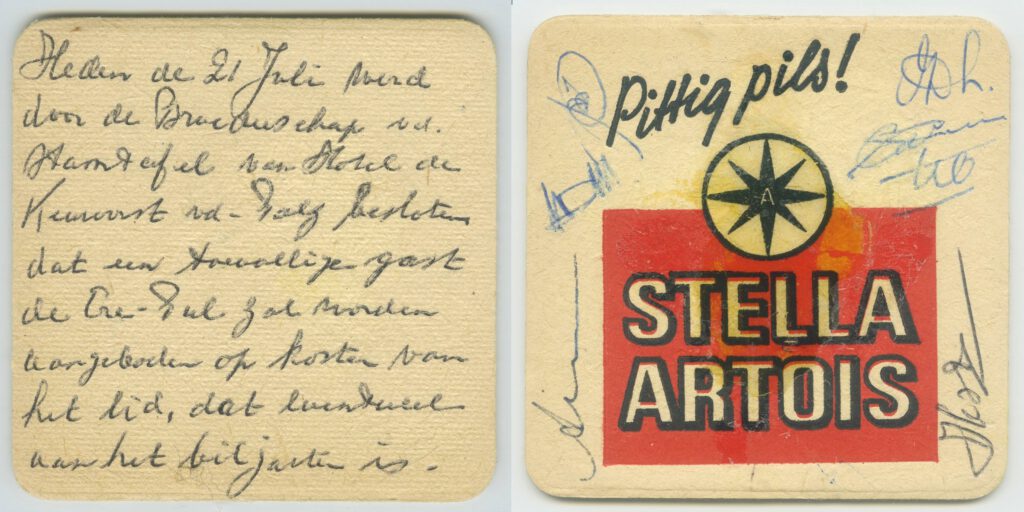 Heden de 21 Juli werd
door de Broederschap vd.
Stamtafel van Hotel de
Keurvorst vd-Valg besloten
dat een toevallige gast
de Ere-Pul zal worden
aangeboden op kosten van
het lid, dat eventueel
aan het biljarten is.
Pittig pils!
A
STELLA
ARTOIS